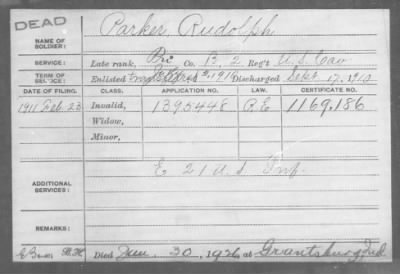 DEAD
Parker Rudolph
NAME OF SOLDIER:
SERVICE: Late rank, Pri Co. B, 2 Reg't U.S. Cav
TERM OF SERVICE: Enlisted 1910 Discharged Sept. 17, 1910
DATE OF FILING. CLASS. APPLICATION NO. LAW. CERTIFICATE NO.
1911 Feb. 23 Invalid, 1395448 1169,186
Widow,
Minor,
ADDITIONAL SERVICES: E 21 U.S. Inf.
REMARKS:
Died 30, 1926, at Grantsburg, Ind.